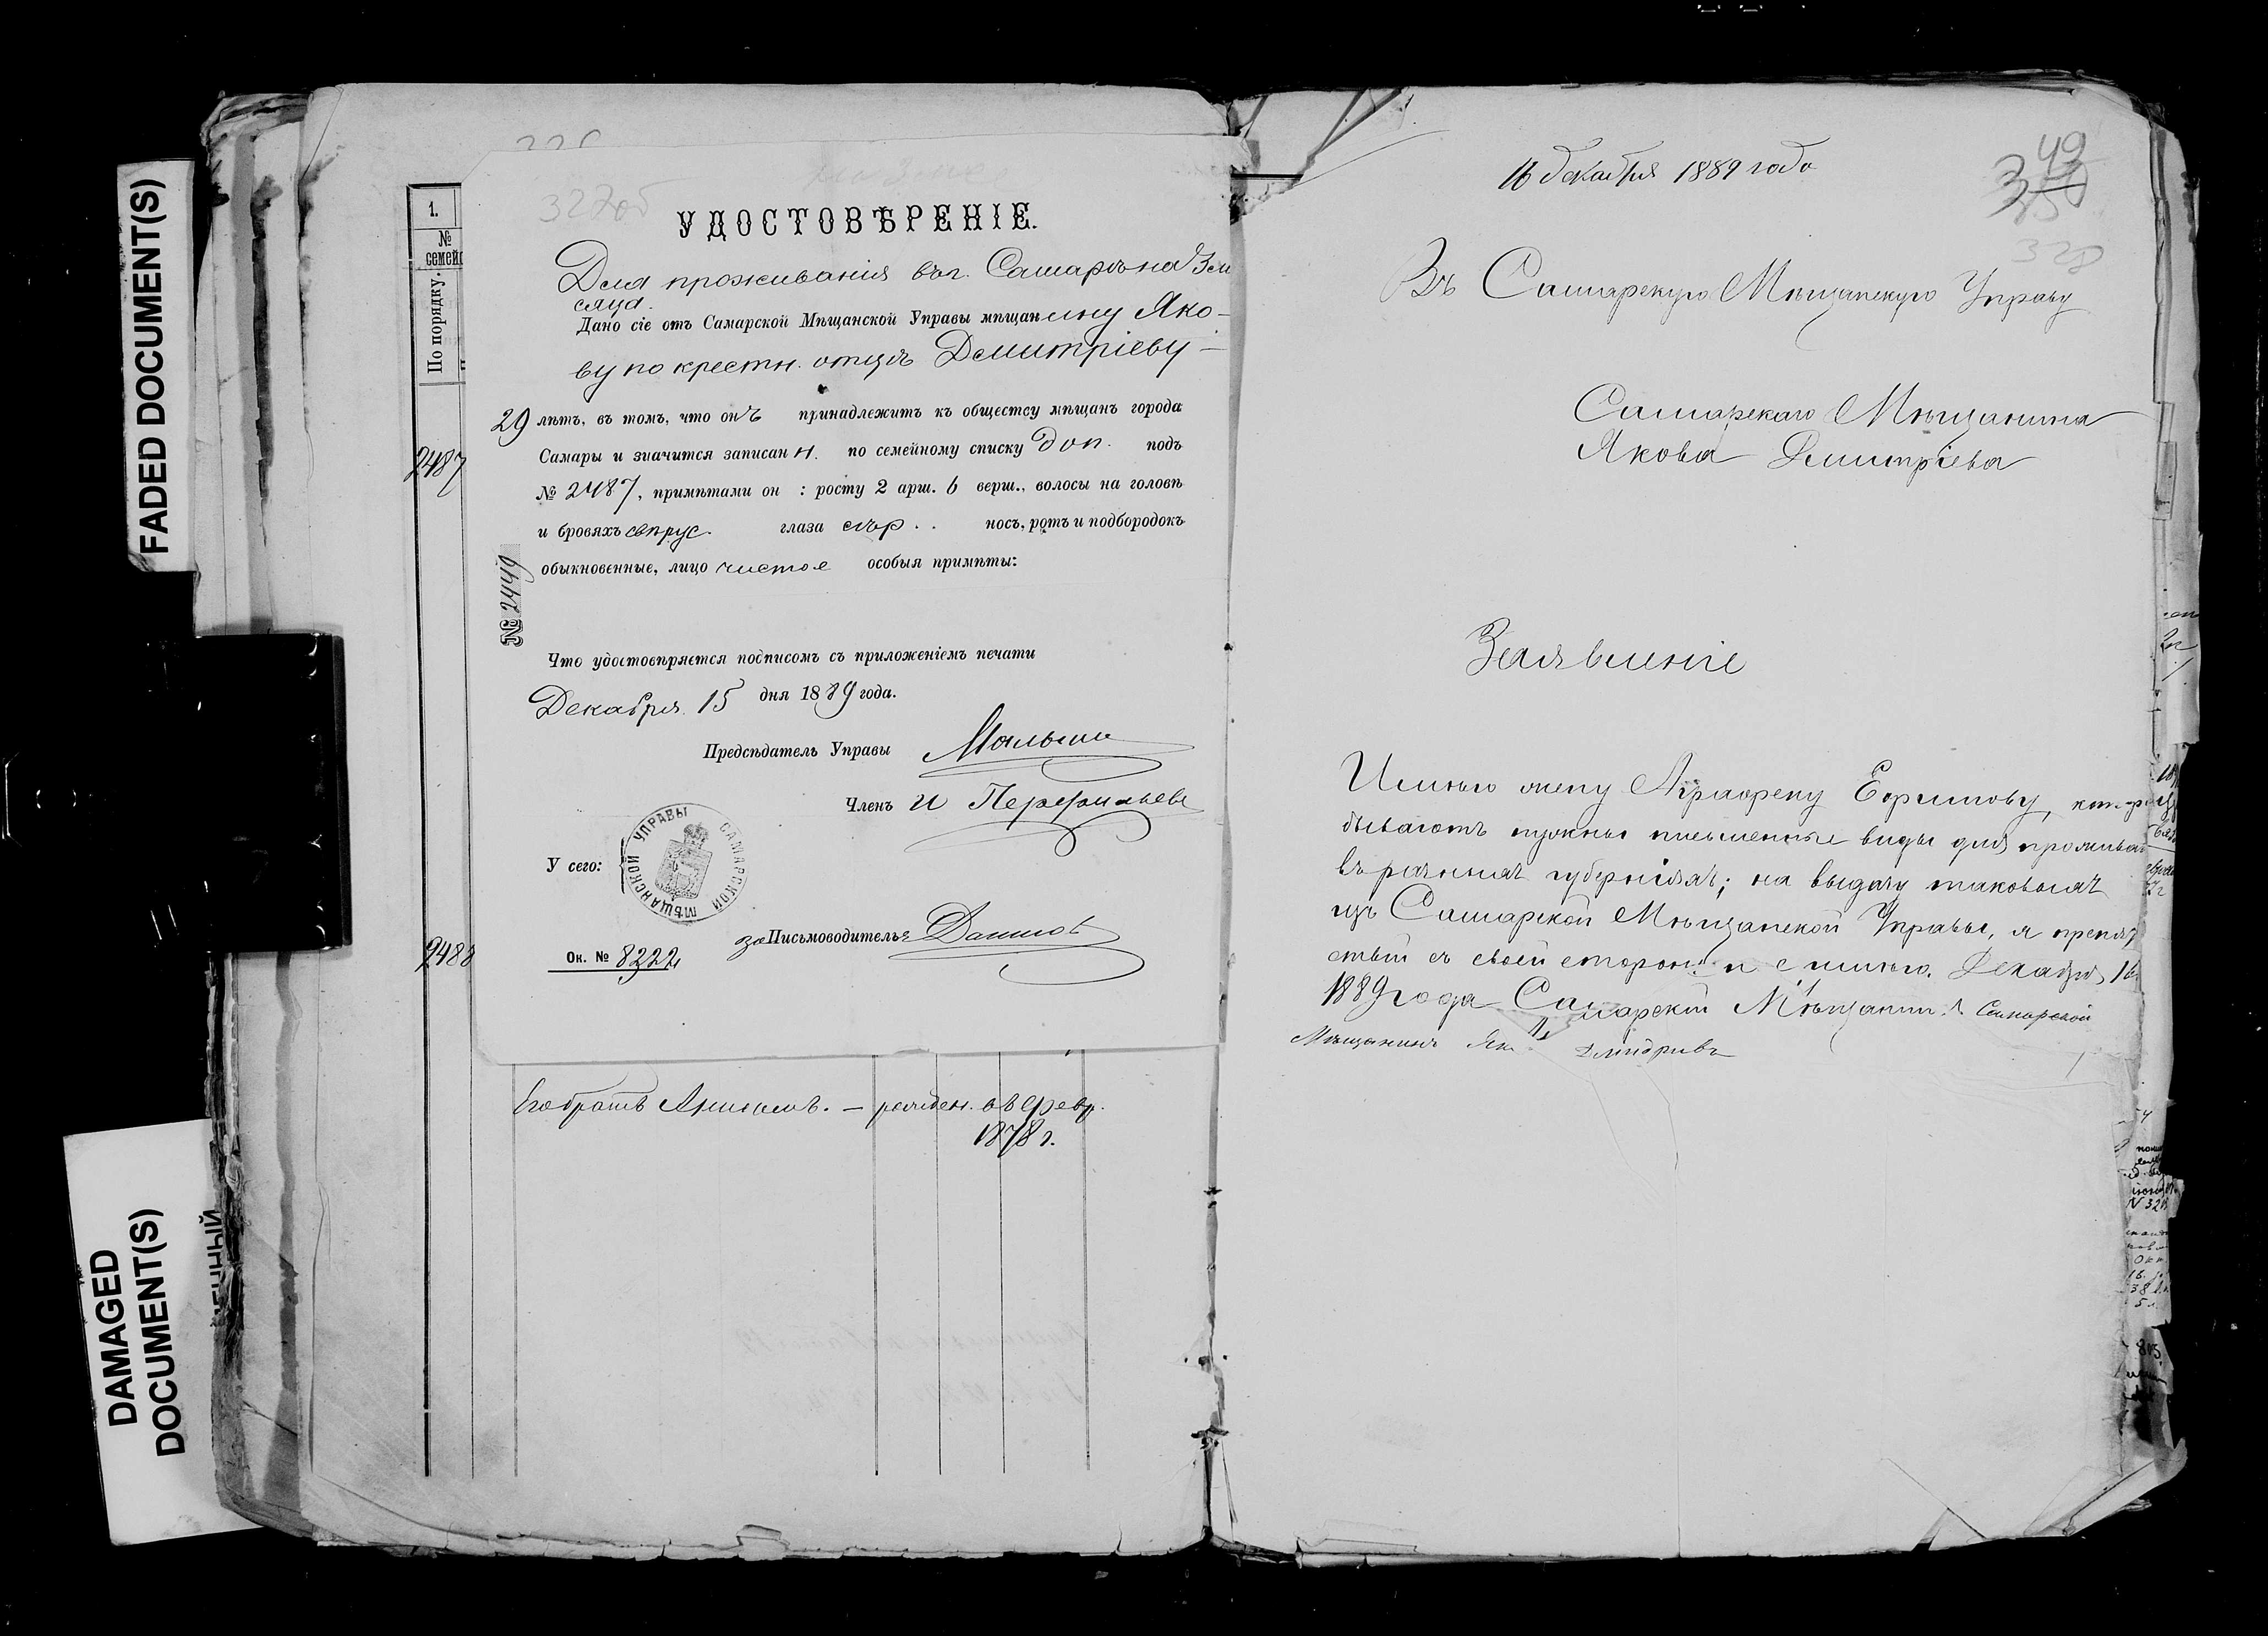 FADED DOCUMENT(S)
DAMAGED
DOCUMENT(S)
1.
№
семей
По порядку.
2487
2488
327об
УДОСТОВѢРЕНІЕ.
Для проживанія въ г. Самарѣ на 3 мѣ
сяца.
Дано сіе отъ Самарской Мѣщанской Управы мѣщанину Яко-
ву по крестн. отцѣ Дмитріеву —
29 лѣтъ, въ томъ, что онъ принадлежитъ къ обществу мѣщанъ города
Самары и значится записан н. по семейному списку доп. подъ
№ 2487, примѣтами он : росту 2 арш. 6 верш., волосы на головѣ
и бровяхъ свѣтрус. глаза сѣр. . носъ, ротъ и подбородокъ
обыкновенные, лицо чистое особыя примѣты:
№ 2449
Что удостовѣряется подписомъ съ приложеніемъ печати
Декабря 15 дня 1889 года.
Предсѣдатель Управы
Членъ И Перфильевъ
У сего:
САМАРСКОЙ МѢЩАНСКОЙ УПРАВЫ
за Письмоводителя Данилов
Ок. № 8222
Его братъ — рожден. въ февр.
1878 г.
16 декабря 1889 года
49
328
Въ Самарскую Мѣщанскую Управу
Самарскаго Мѣщанина
Якова Дмитріева
Заявленіе
Имѣю жену Аграфену Ефимову,
бываютъ нужны письменные виды для прожива
въ разныхъ губерніяхъ; на выдачу таковыхъ
изъ Самарской Мѣщанской Управы, я препят
ствій съ своей стороны н е имѣю. Декабря 16
1889 года Самарскій Мѣщанин Самарской
Мѣщининъ Як Дмидривъ